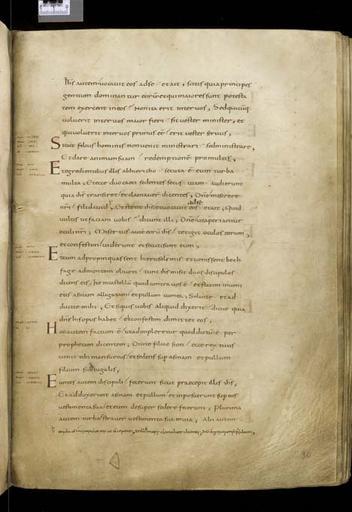 Ihs autem vocavit eos ad se & ait, scitis quia principes
gentium dominantur eorum & qui maiores sunt potesta
tem exercent in eos Non ita erit inter vos, Sed quicumq;
voluerit inter vos maior fieri sit vester minister, &
qui voluerit inter vos primus ee erit vester servus,
Sicut filius hominis non venit ministrari sed ministrare,
Et dare animam suam redemptionem pro multis,
Et egredientibus illis ab hiericho secuta e eum turba
multa, Et ecce duo caeci sedentes secus viam audierunt
quia ihs transiret & clamaverunt dicentes, Dne miserere
nri fili david,
& stetit ihs & vocavit eos & ait, Quid
vultis ut faciam vobis dicunt illi, Dne ut aperiantur
oculi nri, Misertus autem eorum ihs tetigit oculos eorum,
& confestim viderunt & secuti sunt eum,
Et cum adpropinquassent hierosolimis & venissent beth
fage ad montem oliveti tunc ihs misit duos discipulos
dicens eis, Ite in castellum quod contra vos e & statim inveni
etis asinam alligatam & pullum cum ea, Solvite & ad
ducite mihi, Et siquis vobis aliquid dixerit dicite quia
dns his opus habet & confestim dimittet eos,
Hoc autem factum e ut adimpleretur quod dictum e per
prophetam dicentem, Dicite filiae sion ecce rex tuus
venit tibi mansuetus & sedens sup asinam & pullum
filium subiugalis,
Euntes autem discipuli fecerunt sicut praecepit illis ihs,
Et adduxerunt asinam & pullum & inposuerunt sup eos
vestimenta sua & eum desuper sedere fecerunt, Plurima
autem turba straverunt vestimenta sua in via, Alii autem